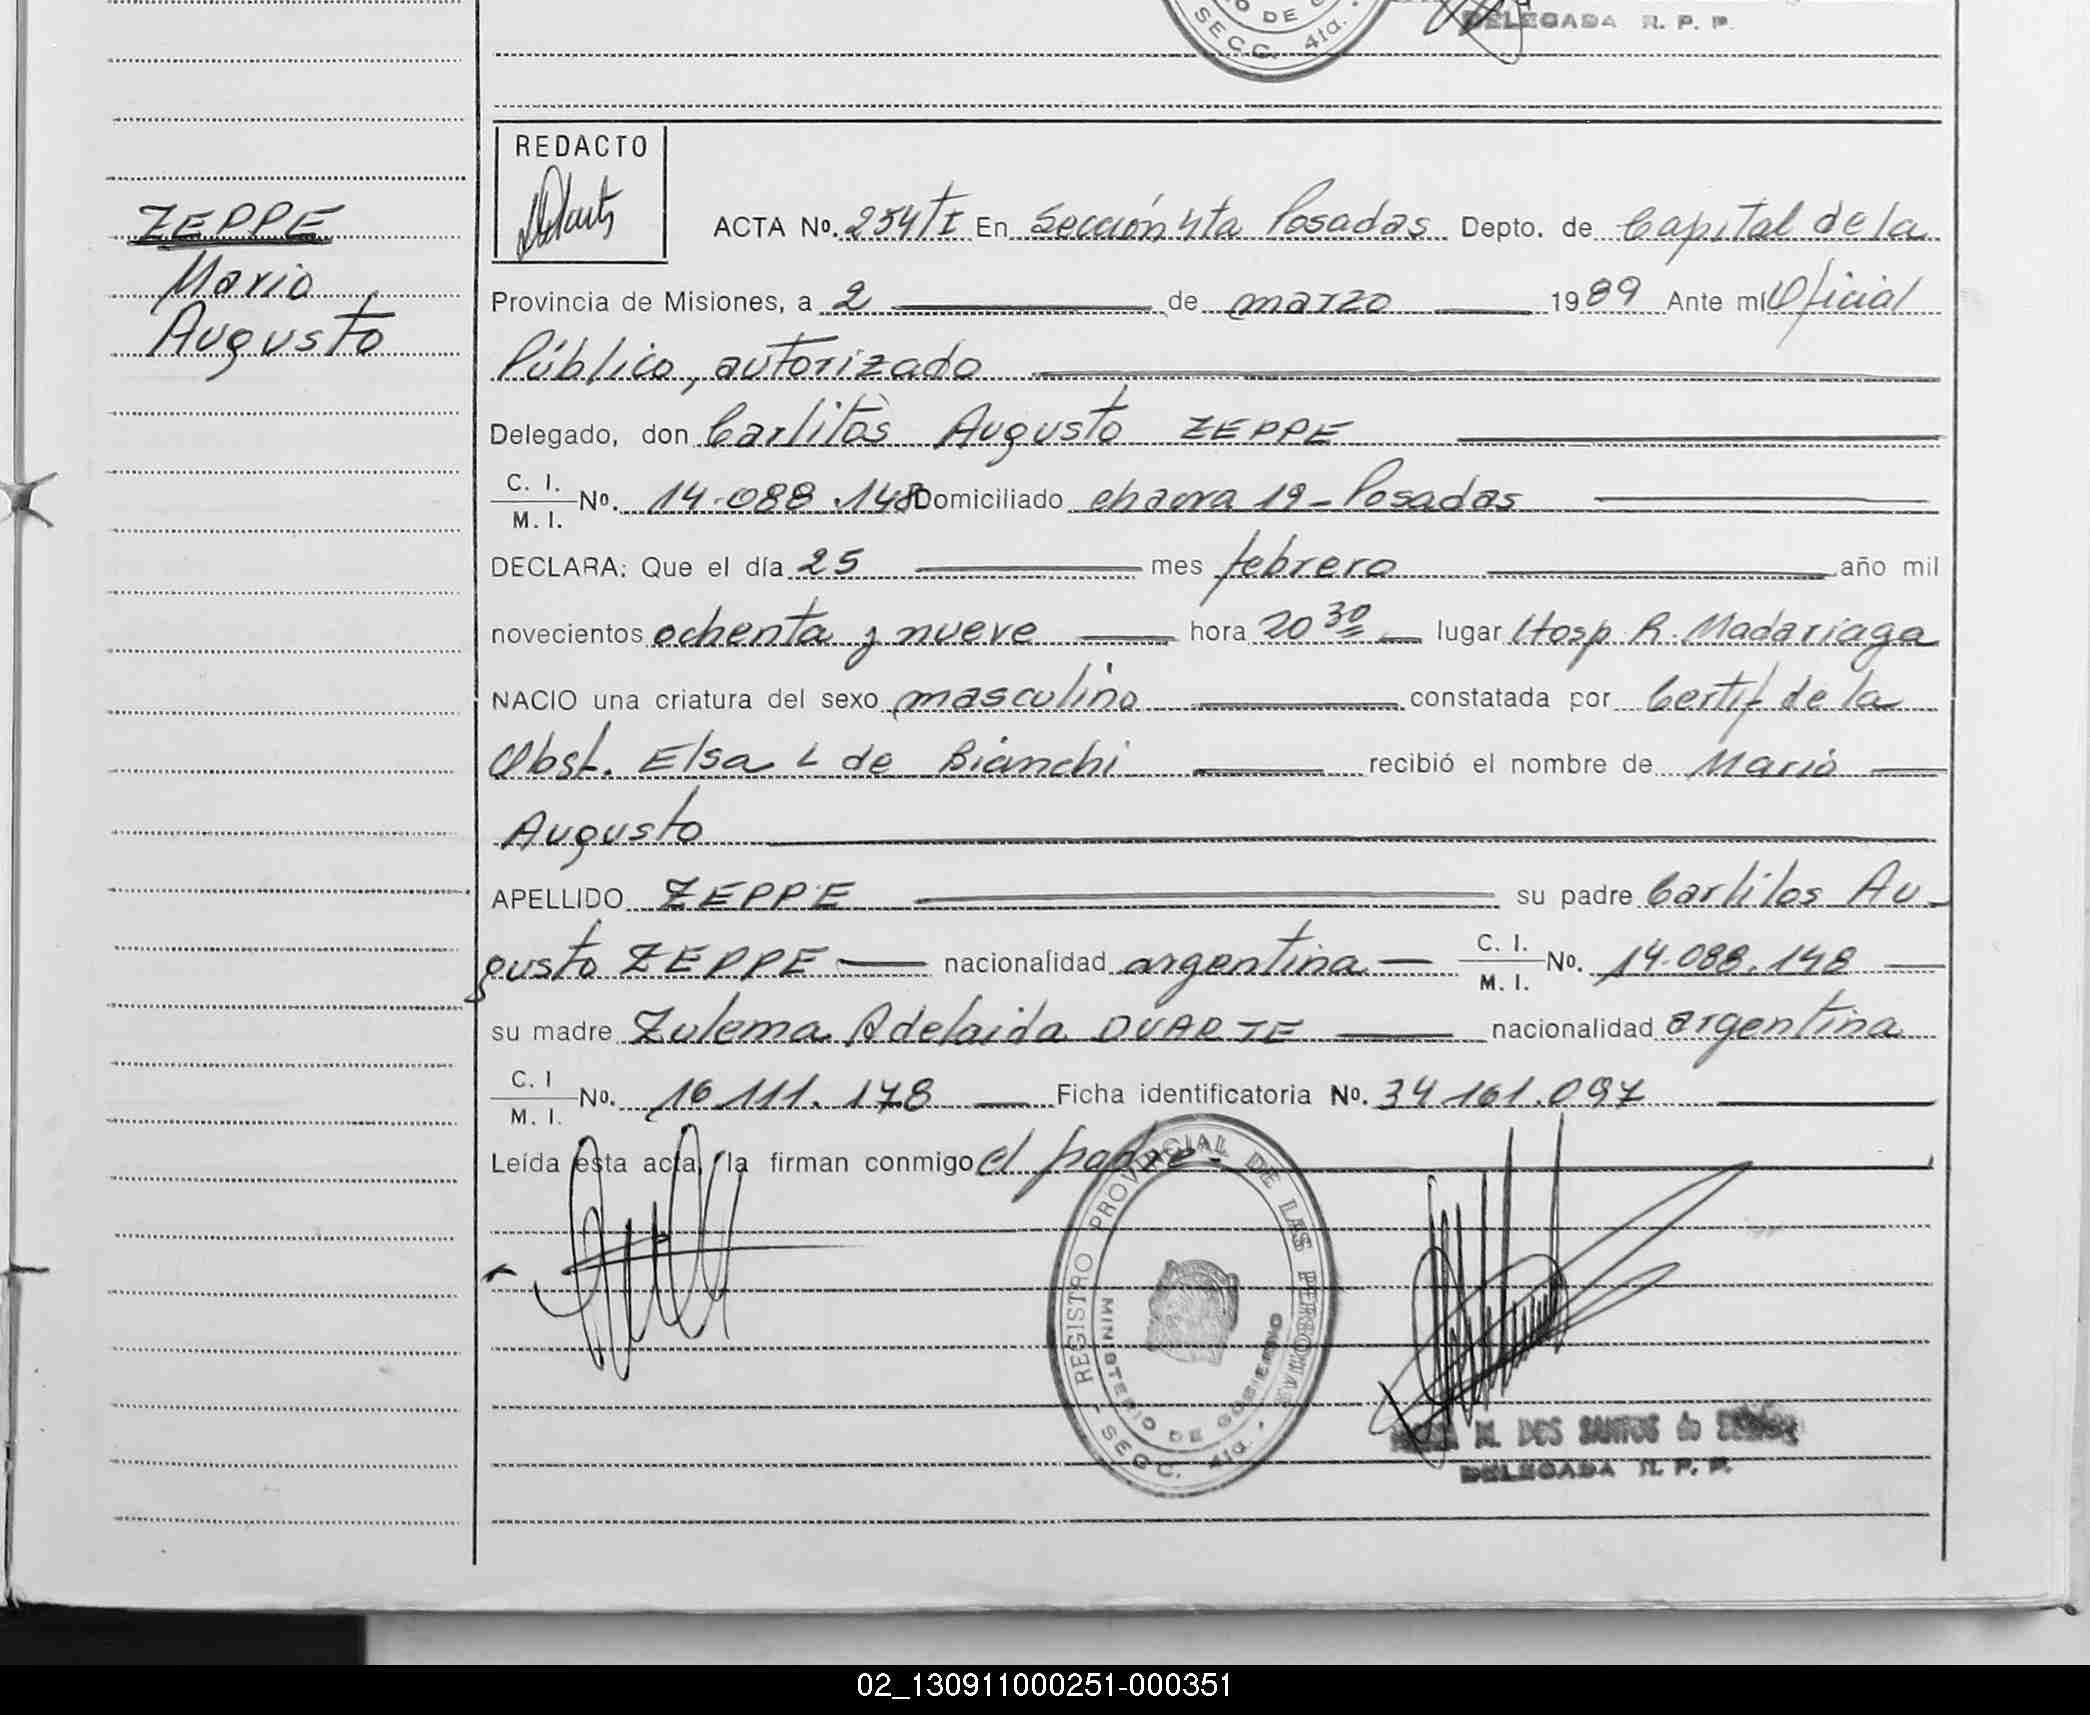 SECC. 4ta.
DELEGADA R. P. P.
REDACTO
ZEPPE
Mario
Augusto
ACTA Nº. 254 TI En Sección 4ta Posadas Depto. de Capital de la
Provincia de Misiones, a 2 de marzo 1989 Ante mí Oficial
Público, autorizado
Delegado, don Carlitos Augusto ZEPPE
C. I.
M. I. Nº. 14.088.148 Domiciliado chacra 19 - Posadas
DECLARA: Que el día 25 mes febrero año mil
novecientos ochenta y nueve hora 20 30 lugar Hosp R. Madariaga
NACIO una criatura del sexo masculino constatada por Certif de la
Obst. Elsa L de Bianchi recibió el nombre de Mario
Augusto
APELLIDO ZEPPE su padre Carlitos Au-
gusto ZEPPE nacionalidad argentina C. I.
M. I. Nº. 14.088.148
su madre Zulema Adelaida DUARTE nacionalidad argentina
C. I
M. I. Nº. 16.111.178 Ficha identificatoria Nº. 34.161.097
Leída esta acta, la firman conmigo el padre-
REGISTRO PROVINCIAL DE LAS PERSONAS
MINISTERIO DE GOBIERNO
- SECC. 4ta. -
M. DOS SANTOS de
DELEGADA R. P. P.
02_130911000251-000351